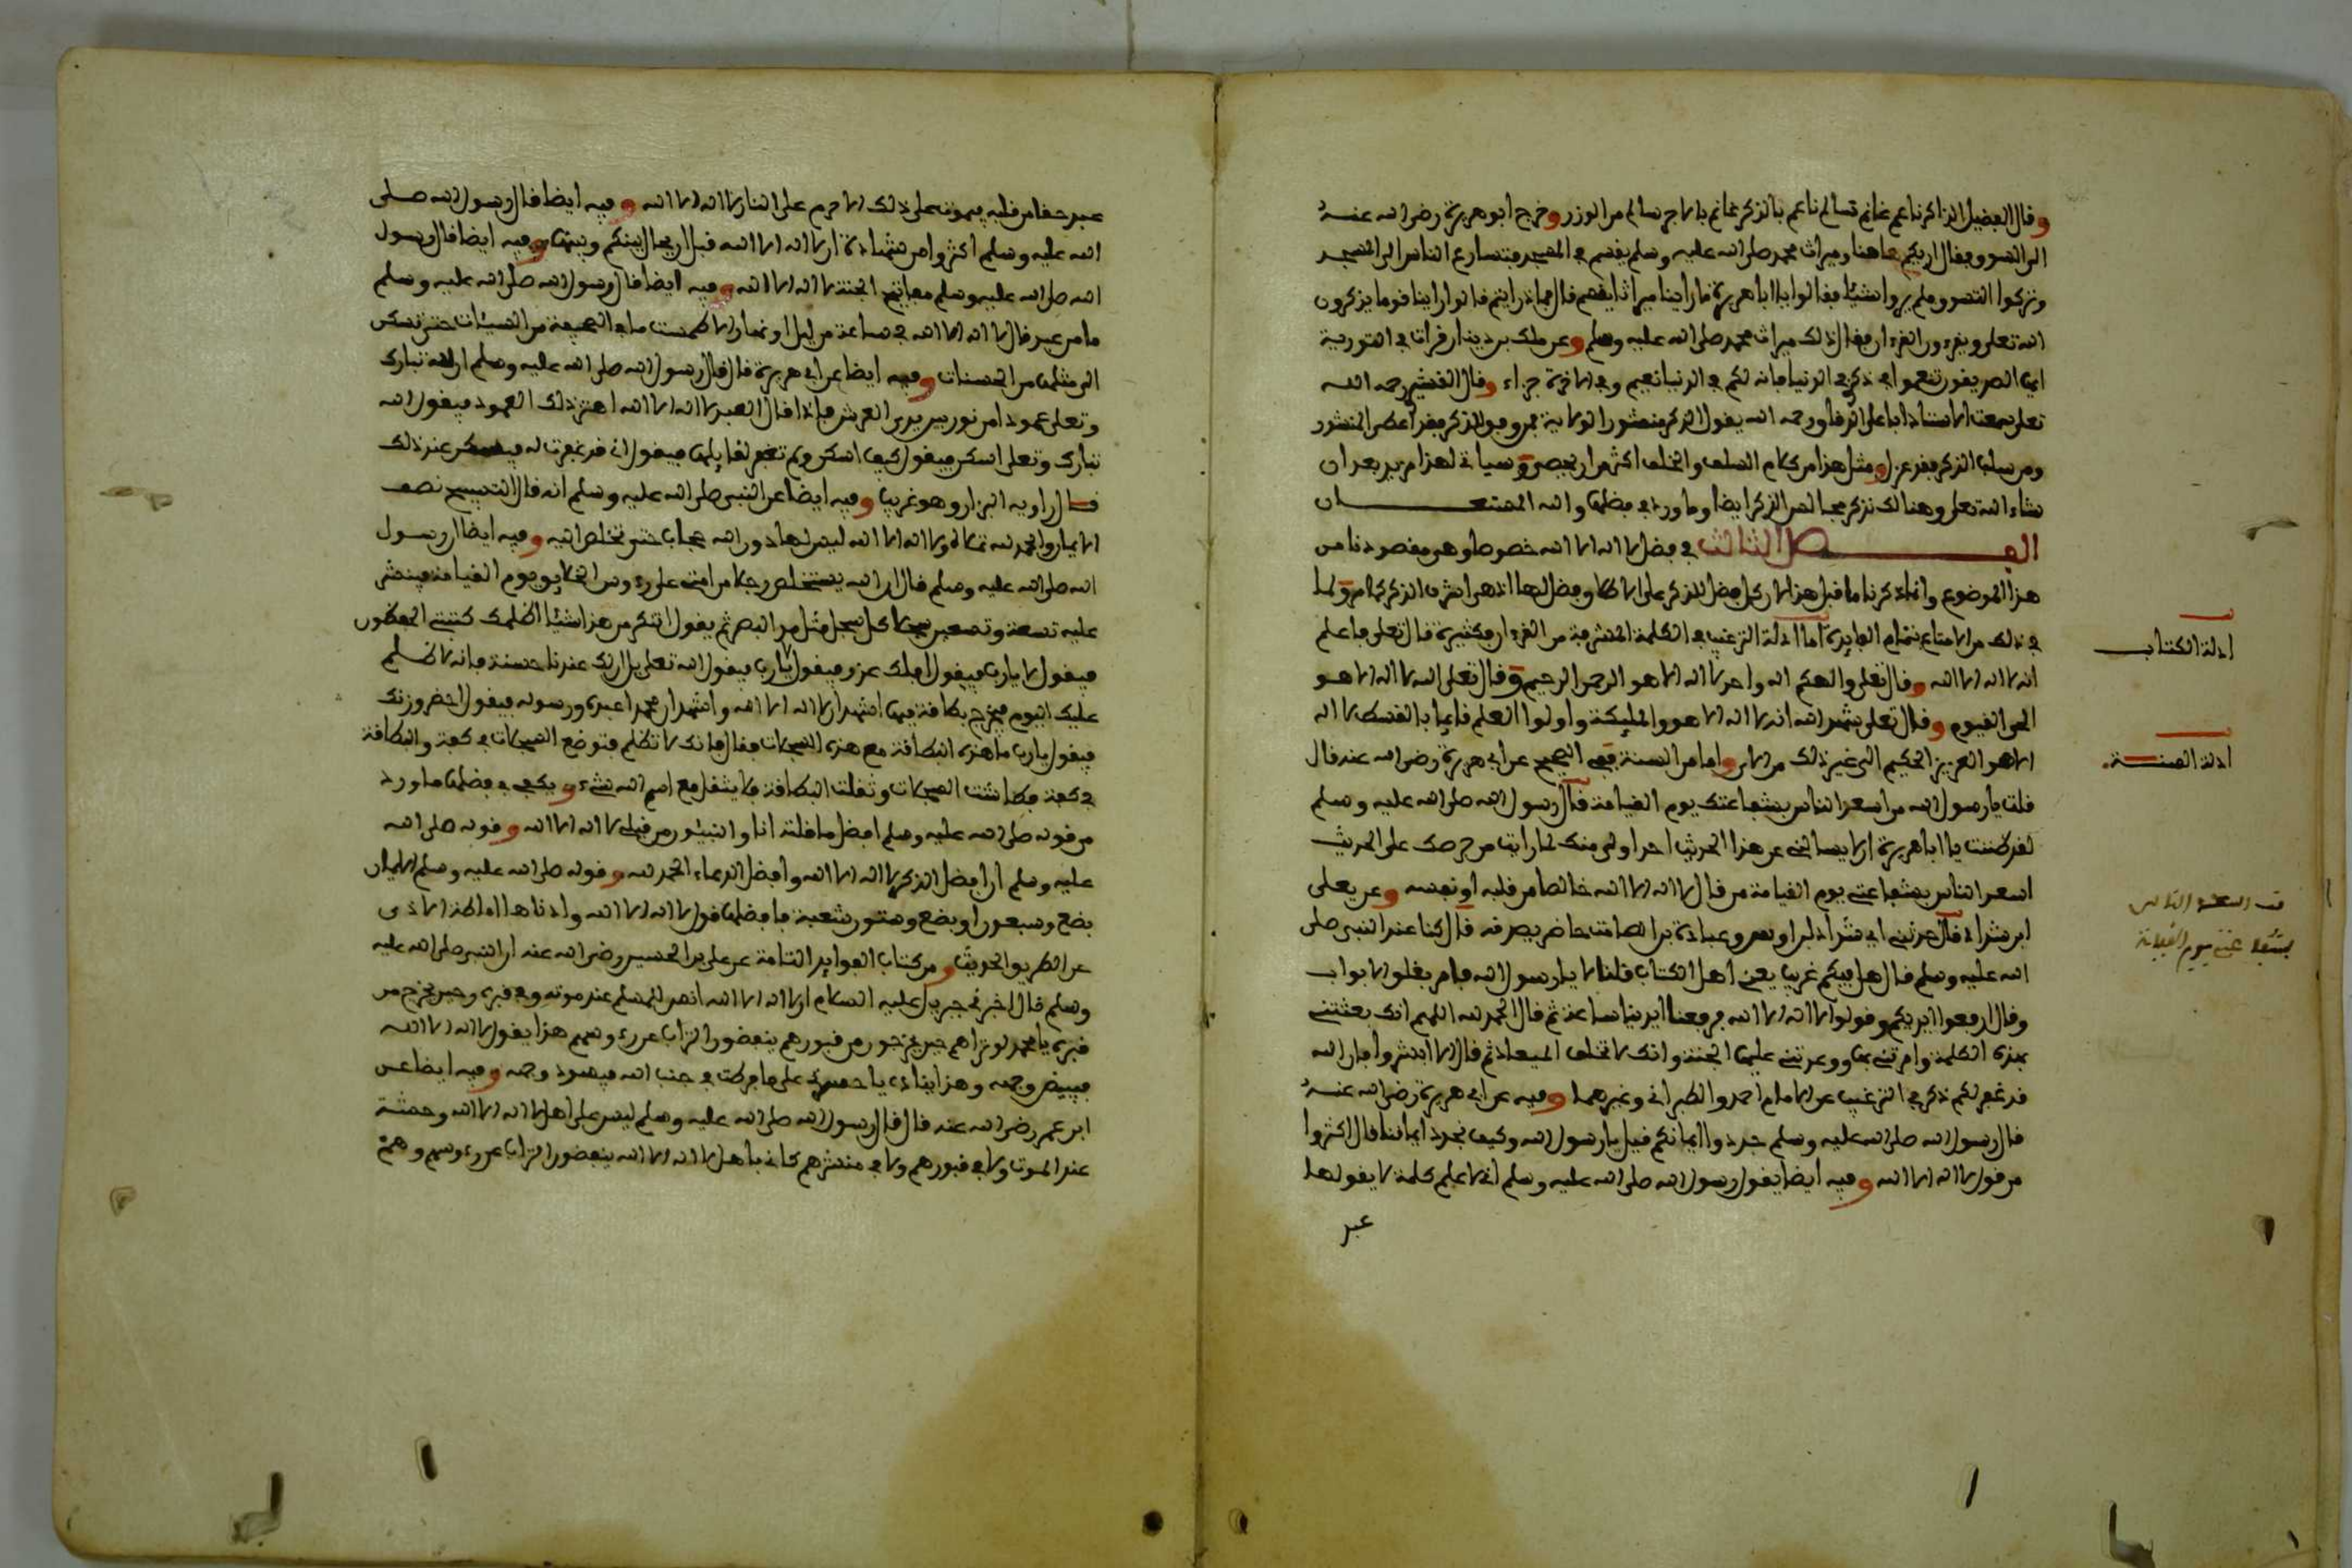 وقال الفضيل الذاكر ناعم غانم تسالم ناعم بالذكر غانم بالاجر سالم من الوزر وخرج ابو هريرة رضي الله عنه
الى السوق فقال اريكم هاهنا وميراث محمد صلى الله عليه وسلم يقسم في المسجد فتسارع الناس الى المسجد
وتركوا السوق فلم يروا شيئا فقالوا يا ابا هريرة ما راينا ميراثا يقسم قال فماذا رايتم قالوا راينا قوما يذكرون
الله تعلى ويقرءون القرءان فقال ذلك ميراث محمد صلى الله عليه وسلم وعن ملك بن دينار قرات في التورية
ايها الصديقون تنعموا في ذكري في الدنيا فانه لكم في الدنيا نعيم وفي الاخرة جزاء وقال القشيري رحمه الله
تعلى سمعت الاستاذ ابا علي الدقاق رحمه الله يقول الذكر منشور الولاية فمن وفق للذكر فقد اعطي المنشور
ومن سلب الذكر فقد عزل ومثل هذا من كلام السلف والخلف اكثر من ان يحصر وسياتي لهذا مزيد بعد ان
شاء الله تعلى وهنالك نذكر مجالس الذكر ايضا وما ورد في فضلها والله المستعان
الفصل الثالث في فضل لا اله الا الله خصوصا وهو مقصودنا من
هذا الموضوع وانما ذكرنا ما قبل هذا لان كل فضل للذكر على الاطلاق فضل لها اذ هي اشرف الذكر كما مر ولما
في ذلك من الامتاع بتمام الفايدة اما ادلة الترغيب في الكلمة المشرفة من القرءان فكثيرة قال تعلى فاعلم
انه لا اله الا الله وقال تعلى والهكم اله واحد لا اله الا هو الرحمن الرحيم وقال تعلى الله لا اله الا هو
الحي القيوم وقال تعلى شهد الله انه لا اله الا هو والمليكة واولوا العلم قايما بالقسط لا اله
الا هو العزيز الحكيم الى غير ذلك من الاي واما من السنة ففي الصحيح عن ابي هريرة رضي الله عنه قال
قلت يا رسول الله من اسعد الناس بشفاعتك يوم القيامة قال رسول الله صلى الله عليه وسلم
لقد ظننت يا ابا هريرة ان لا يسالني عن هذا الحديث احد اولى منك لما رايت من حرصك على الحديث
اسعد الناس بشفاعتي يوم القيامة من قال لا اله الا الله خالصا من قلبه او نفسه وعن يعلى
ابن شداد قال حدثني ابي شداد بن اوس وعبادة بن الصامت حاضر يصدقه قال كنا عند النبي صلى
الله عليه وسلم فقال هل فيكم غريب يعني اهل الكتاب قلنا لا يا رسول الله فامر بغلق الابواب
وقال ارفعوا ايديكم وقولوا لا اله الا الله فرفعنا ايدينا ساعة ثم قال الحمد لله اللهم انك بعثتني
بهذه الكلمة وامرتني بها ووعدتني عليها الجنة وانك لا تخلف الميعاد ثم قال الا ابشروا فان الله
قد غفر لكم ذكره في الترغيب عن الامام احمد والطبراني وغيرهما وفيه عن ابي هريرة رضي الله عنه
قال رسول الله صلى الله عليه وسلم جددوا ايمانكم قيل يا رسول الله وكيف نجدد ايماننا قال اكثروا
من قول لا اله الا الله وفيه ايضا يقول رسول الله صلى الله عليه وسلم اني لاعلم كلمة لا يقولها
عبد
ادلة الكتاب
ادلة السنة
اسعد الناس
بشفاعتي يوم القيامة
عبد حقا من قلبه فيموت على ذلك الا حرم على النار لا اله الا الله وفيه ايضا قال رسول الله صلى
الله عليه وسلم اكثروا من شهادة ان لا اله الا الله قبل ان يحال بينكم وبينها وفيه ايضا قال رسول
الله صلى الله عليه وسلم مفاتيح الجنة لا اله الا الله وفيه ايضا قال رسول الله صلى الله عليه وسلم
ما من عبد قال لا اله الا الله في ساعة من ليل او نهار الا طمست ما في الصحيفة من السيئات حتى تسكن
الى مثلها من الحسنات وفيه ايضا عن ابي هريرة قال قال رسول الله صلى الله عليه وسلم ان لله تبارك
وتعلى عمودا من نور بين يدي العرش فاذا قال العبد لا اله الا الله اهتز ذلك العمود فيقول الله
تبارك وتعلى اسكن فيقول كيف اسكن ولم تغفر لقايلها فيقول اني قد غفرت له فيسكن عند ذلك
قال راويه البزار وهو غريب وفيه ايضا عن النبي صلى الله عليه وسلم انه قال التسبيح نصف
الايمان والحمد لله تملاه ولا اله الا الله ليس لها دون الله حجاب حتى تخلص اليه وفيه ايضا ان رسول
الله صلى الله عليه وسلم قال ان الله يستخلص رجلا من امتي على رءوس الخلايق يوم القيامة فينشر
عليه تسعة وتسعين سجلا كل سجل مثل مد البصر ثم يقول اتنكر من هذا شيئا اظلمك كتبتي الحافظون
فيقول لا يا رب فيقول افلك عذر فيقول لا يا رب فيقول الله تعلى بلى ان لك عندنا حسنة فانه لا ظلم
عليك اليوم فيخرج بطاقة فيها اشهد ان لا اله الا الله واشهد ان محمدا عبده ورسوله فيقول احضر وزنك
فيقول يا رب ما هذه البطاقة مع هذه السجلات فقال فانك لا تظلم فتوضع السجلات في كفة والبطاقة
في كفة فطاشت السجلات وثقلت البطاقة فلا يثقل مع اسم الله شيء ويكفي في فضلها ما ورد
من قوله صلى الله عليه وسلم افضل ما قلته انا والنبيئون من قبلي لا اله الا الله وقوله صلى الله
عليه وسلم ان افضل الذكر لا اله الا الله وافضل الدعاء الحمد لله وقوله صلى الله عليه وسلم الايمان
بضع وسبعون او بضع وستون شعبة فافضلها قول لا اله الا الله وادناها اماطة الاذى
عن الطريق الحديث ومن كتاب الفوايد التامة عن علي بن الحسين رضي الله عنه ان النبي صلى الله عليه
وسلم قال اخبرني جبريل عليه السلام ان لا اله الا الله انس للمسلم عند موته وفي قبره وحين يخرج من
قبره يا محمد لو تراهم حين يخرجون من قبورهم ينفضون التراب عن رءوسهم هذا يقول لا اله الا الله
فيبيض وجهه وهذا ينادي يا حسرتى على ما فرطت في جنب الله فيسود وجهه وفيه ايضا عن
ابن عمر رضي الله عنه قال قال رسول الله صلى الله عليه وسلم ليس على اهل لا اله الا الله وحشة
عند الموت ولا في قبورهم ولا في منشرهم كاني باهل لا اله الا الله ينفضون التراب عن رءوسهم وهم